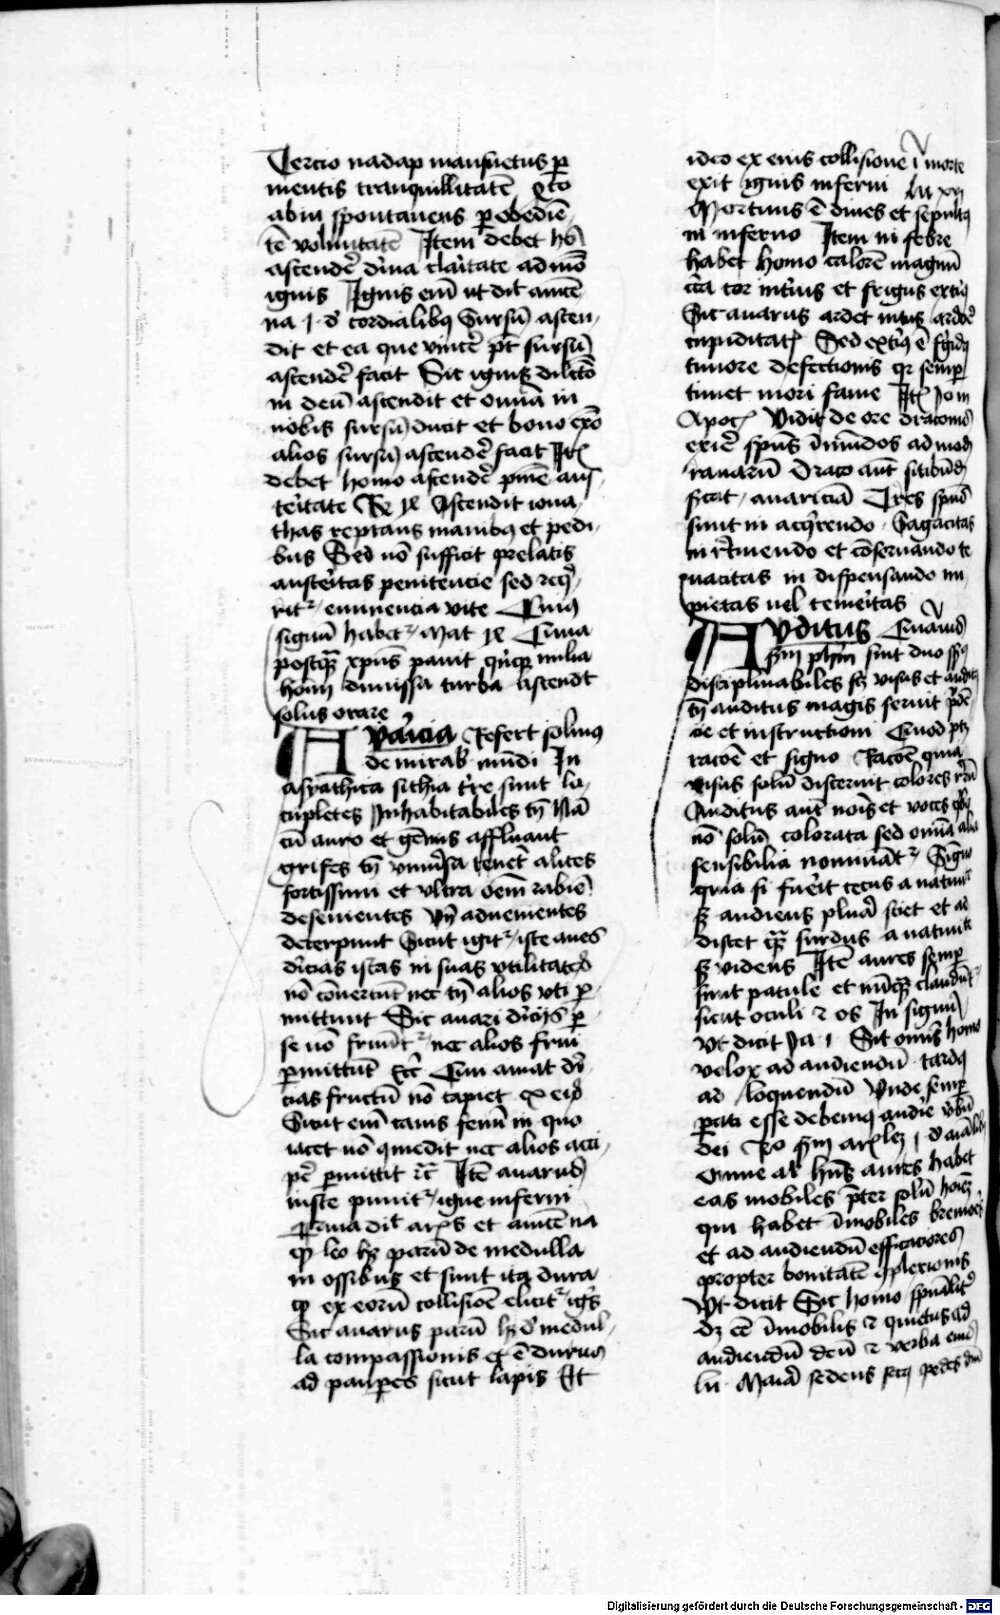 Tercio nadap mansuetus p̲
mentis tranquillitatē Qͬto
abiu spontaneus p̲ obediē
tē voluntatē Item debet hō
ascendeᷣ diᷣna claritate ad mō
ignis Ignis eīm ut dit auice
na j d̓ cordialibꝯ Sursū ascen
dit et ea que vinceᷣ pᷣt sursū
ascendeᷣ facit Sic ignis dilectō
in deū ascendit et omīa in
nobis sursū ducit et bono exō
alios sursū ascendeᷣ facit Itꝫ
debet homo ascendeᷣ pniē aus
teritate Rͤ ix Ascendit iona
thas reptans manibꝯ et pedi
bus Sed nō sufficit prelatis
austeritas penitencie sed reqͥ
ritᷣ eminencia vite Cuius
signū habetᷣ Mat ix Cuna
postqꝫ xpūs pauit qͥnqꝫ milia
hoīm dimissa turba ascendt
solus orare
Avaricia Refert solinus
de mirab mūdi In
asyathica sithia tᷣre sunt lo
cupletes Inhabitabiles tn̄ Nā
cū auro et gēmis affluant
grifes tn̄ vniuᷣsa tenēt alites
fortissimi et vltra oēm rabiē
deseuientes Vn̄ aduenientes
decerpunt Sicut igitᷣ iste aues
diᷣcias istas in suas vtilitates
nō cōuertūt nec tn̄ alios vti p̲
mittunt Sic auari diᷣcijs p̲
se nō fruūtᷣ nec alios frui
p̲mittūt Ecc̄ Qui amat diᷣ
cias fructū nō capiet ex eis
Sicut eīm canis fenū in quo
iacet nō ꝯmedit nec alios acci
pe᷑ p̲mittit ⁊c̄ Itē auarus
iuste punitᷣ igne inferni
Prima dit arꝫs et auicēna
qꝫ leo hꝫ parū de medulla
in ossibus et sunt ita dura
qꝫ ex eorū collisiōe elicitᷣ igͥs
Sic auarus parū hꝫ d̓ medul
la compassionis qꝫ ē durus
ad paup̲es sicut lapis Et
ideo ex eius collisione ī morte
exit ignis inferni Lu xvj
Mortuus ē diues et sepultꝯ
in inferno Item in febre
habet homo calorē magnū
cͥca cor intᷣius et frigus extiꝯ
Sic auarus ardet intus ardoᷣe
cupiditatꝭ Sed extiᷣꝯ ē frͥgidꝯ
timore defectionis qr semp̲
timet mori fame Itꝫ Io in
Apocꝭ Vidit de ore draconis
exieᷣ spūs īmūdos ad modū
ranarū Draco aut sitibūdꝯ
sigᷣt auariciā Tres spūs
sunt in acqͥrendo Sagacitas
in rͤtinendo et cōseruando te
nacitas in dispensando im
pietas uel temeritas
Avditus Quāuis
scᷣm phm̄ sint duo sensꝯ
disciplinabiles scꝫ visus et auditꝯ
tn̄ auditus magis seruit fidei
cie et instructioni Quod ptꝫ
racōe et signo Racōe quia
visus solū discernit colores rerū
Auditus aut noīs et voces qͥbꝯ
nō solū colorata sed omīa alia
sensibilia nominātᷣ Signo
gracia si fueᷣit cecus a natiuitate
sꝫ audiens plura sciet et ad
discet qꝫ surdus a natiuitate
sꝫ videns Itē aures semp̲
sunt patule et nūqꝫ claudūtᷣ
sicut oculi ⁊ os In signū
Vt dicit Ia i Sit omīs homo
velox ad audiendū tardꝯ
ad loquendū Unde semp̲
parati esse debemꝯ audie᷑ vᷣbū
dei Rͦ scᷣm arꝫlez j d̓ aīalibꝯ
omne al hn̄s aures habet
eas mobiles pᷣter solū hoīeꝫ
qui habet īmobiles breuiores
et ad audiendū efficaciores
propter bonitatē ꝯplexionis
Vt dicit Sic homo spūalitᷣ
dꝫ ēē īmobilis ⁊ quietus ad
audiendū deū ⁊ verba eius
lu Maria sedens secꝯ pedes dn̄i
Digitalisierung gefördert durch die Deutsche Forschungsgemeinschaft - DFG